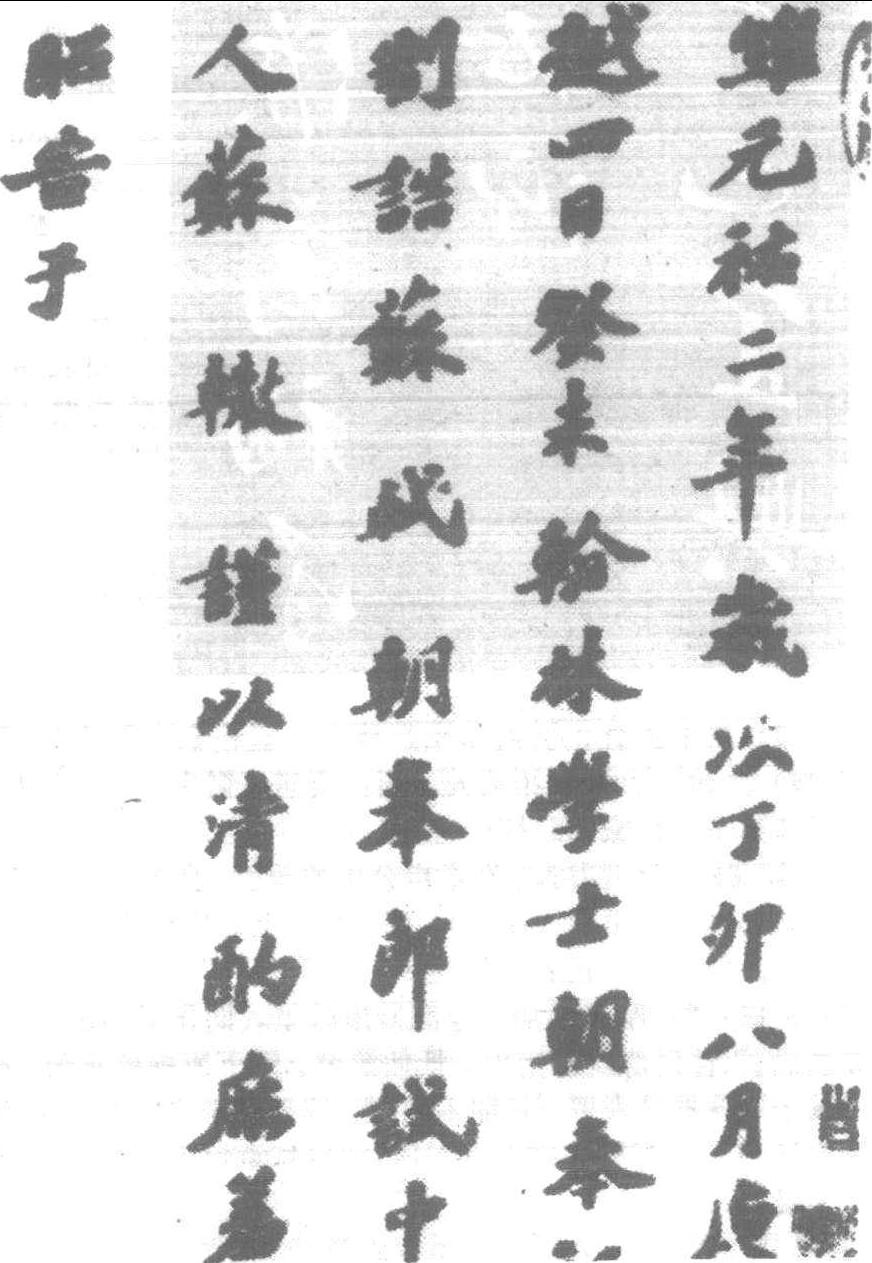 維元祐二年歲次丁卯八月庚
越四日癸未翰林學士朝奉
制誥蘇軾朝奉郎試中
人蘇轍謹以清酌庶羞
昭告于